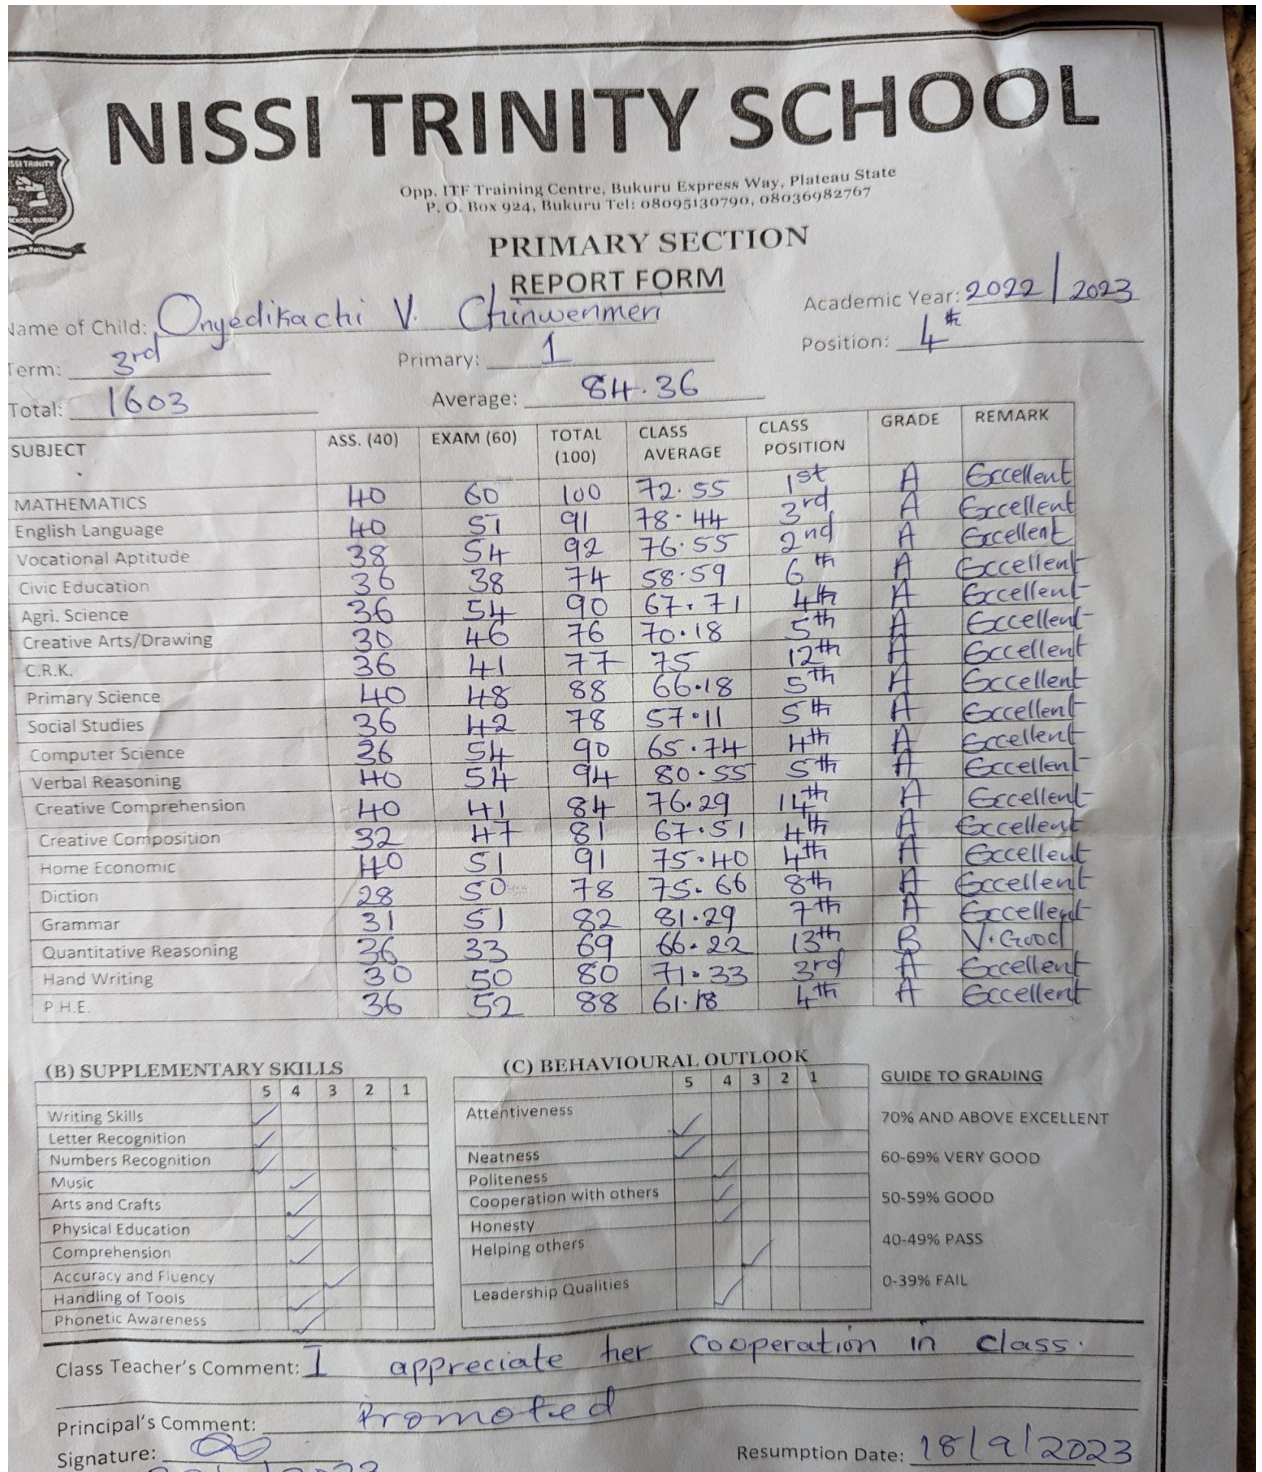 NISSI TRINITY SCHOOL
SSI TRINITY
Opp. ITF Training Centre, Bukuru Express Way, Plateau State
P. O. Box 924, Bukuru Tel: 08095130790, 08036982767
PRIMARY SECTION
REPORT FORM
Name of Child: Onyedikachi V. Chinwenmeri Academic Year: 2022/2023
Term: 3rd Primary: 1 Position: 4th
Total: 1603 Average: 84.36
SUBJECT ASS. (40) EXAM (60) TOTAL (100) CLASS AVERAGE CLASS POSITION GRADE REMARK
MATHEMATICS 40 60 100 72.55 1st A Excellent
English Language 40 51 91 78.44 3rd A Excellent
Vocational Aptitude 38 54 92 76.55 2nd A Excellent
Civic Education 36 38 74 58.59 6th A Excellent
Agri. Science 36 54 90 67.71 4th A Excellent
Creative Arts/Drawing 30 46 76 70.18 5th A Excellent
C.R.K. 36 41 77 75 12th A Excellent
Primary Science 40 48 88 66.18 5th A Excellent
Social Studies 36 42 78 57.11 5th A Excellent
Computer Science 36 54 90 65.74 4th A Excellent
Verbal Reasoning 40 54 94 80.55 5th A Excellent
Creative Comprehension 40 41 84 76.29 14th A Excellent
Creative Composition 32 47 81 67.51 4th A Excellent
Home Economic 40 51 91 75.40 4th A Excellent
Diction 28 50 78 75.66 8th A Excellent
Grammar 31 51 82 81.29 7th A Excellent
Quantitative Reasoning 36 33 69 66.22 13th B V.Good
Hand Writing 30 50 80 71.33 3rd A Excellent
P.H.E. 36 52 88 61.18 4th A Excellent
(B) SUPPLEMENTARY SKILLS
5 4 3 2 1
Writing Skills
Letter Recognition
Numbers Recognition
Music
Arts and Crafts
Physical Education
Comprehension
Accuracy and Fluency
Handling of Tools
Phonetic Awareness
(C) BEHAVIOURAL OUTLOOK
5 4 3 2 1
Attentiveness
Neatness
Politeness
Cooperation with others
Honesty
Helping others
Leadership Qualities
GUIDE TO GRADING
70% AND ABOVE EXCELLENT
60-69% VERY GOOD
50-59% GOOD
40-49% PASS
0-39% FAIL
Class Teacher's Comment: I appreciate her cooperation in class.
Principal's Comment: Promoted
Signature: Resumption Date: 18/9/2023